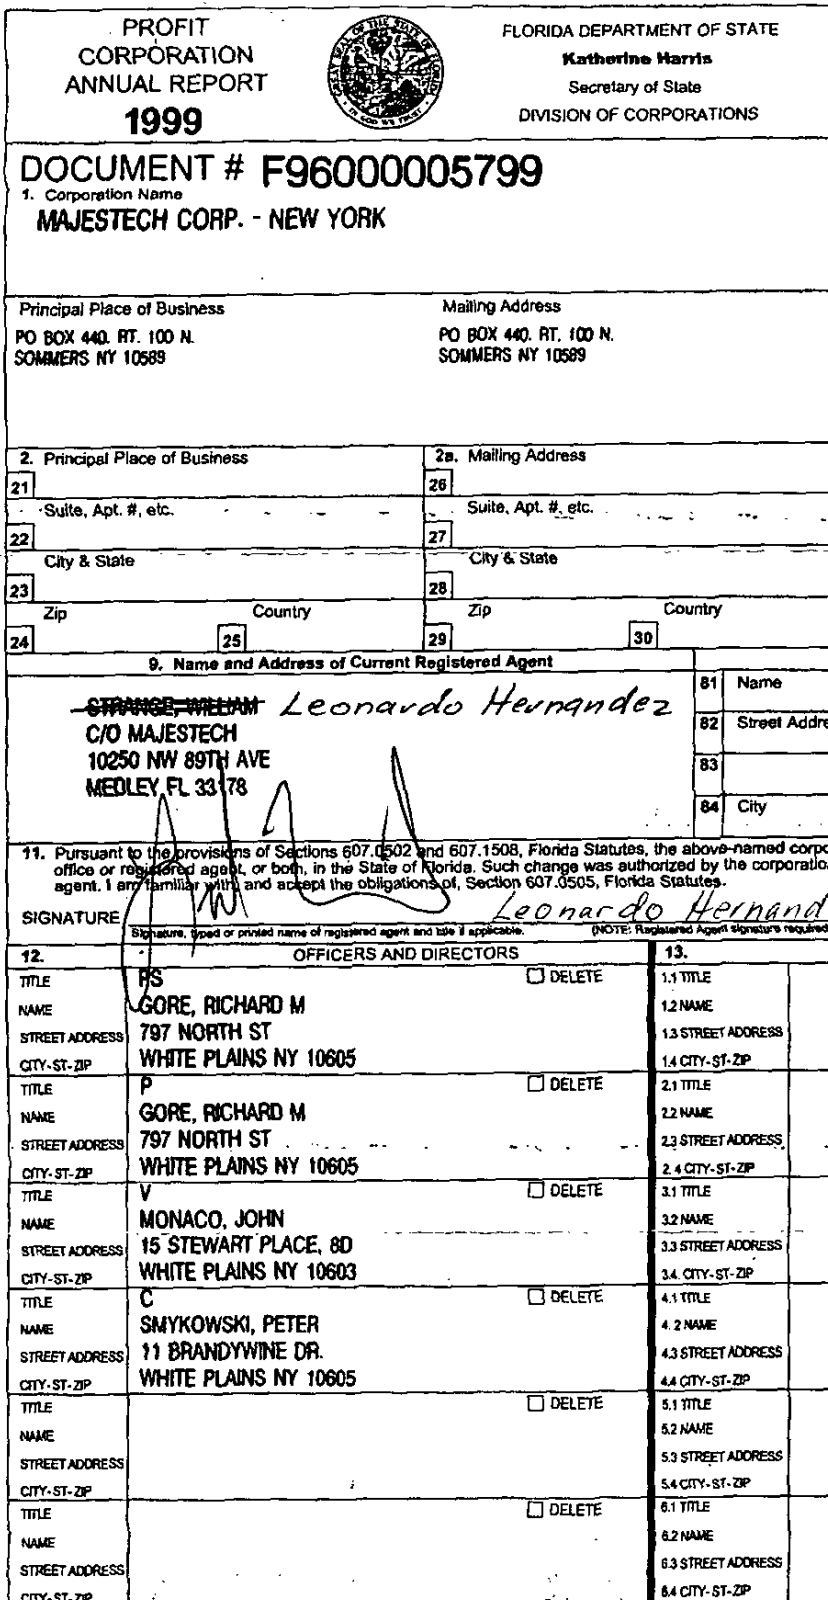 PROFIT
CORPORATION
ANNUAL REPORT
1999
FLORIDA DEPARTMENT OF STATE
Katherine Harris
Secretary of State
DIVISION OF CORPORATIONS
GREAT SEAL OF THE STATE OF FLORIDA
IN GOD WE TRUST
DOCUMENT # F96000005799
1. Corporation Name
MAJESTECH CORP. - NEW YORK
Principal Place of Business
PO BOX 440. RT. 100 N.
SOMMERS NY 10589
Mailing Address
PO BOX 440. RT. 100 N.
SOMMERS NY 10589
2. Principal Place of Business
2a. Mailing Address
21
26
Suite, Apt. #, etc.
Suite, Apt. #, etc.
22
27
City & State
City & State
23
28
Zip
Country
Zip
Country
24
25
29
30
9. Name and Address of Current Registered Agent
STRANGE, WILLIAM Leonardo Hernandez
C/O MAJESTECH
10250 NW 89TH AVE
MEDLEY FL 33178
81 Name
82 Street Addre
83
84 City
11. Pursuant to the provisions of Sections 607.0502 and 607.1508, Florida Statutes, the above-named corpo
office or registered agent, or both, in the State of Florida. Such change was authorized by the corporatio
agent. I am familiar with, and accept the obligations of, Section 607.0505, Florida Statutes.
SIGNATURE
Leonardo Hernand
Signature, typed or printed name of registered agent and title if applicable.
(NOTE: Registered Agent signature required
12.
OFFICERS AND DIRECTORS
13.
TITLE PS DELETE
NAME GORE, RICHARD M
STREET ADDRESS 797 NORTH ST
CITY-ST-ZIP WHITE PLAINS NY 10605
1.1 TITLE
1.2 NAME
1.3 STREET ADDRESS
1.4 CITY-ST-ZIP
TITLE P DELETE
NAME GORE, RICHARD M
STREET ADDRESS 797 NORTH ST
CITY-ST-ZIP WHITE PLAINS NY 10605
2.1 TITLE
2.2 NAME
2.3 STREET ADDRESS
2.4 CITY-ST-ZIP
TITLE V DELETE
NAME MONACO, JOHN
STREET ADDRESS 15 STEWART PLACE, 8D
CITY-ST-ZIP WHITE PLAINS NY 10603
3.1 TITLE
3.2 NAME
3.3 STREET ADDRESS
3.4. CITY-ST-ZIP
TITLE C DELETE
NAME SMYKOWSKI, PETER
STREET ADDRESS 11 BRANDYWINE DR.
CITY-ST-ZIP WHITE PLAINS NY 10605
4.1 TITLE
4.2 NAME
4.3 STREET ADDRESS
4.4 CITY-ST-ZIP
TITLE DELETE
NAME
STREET ADDRESS
CITY-ST-ZIP
5.1 TITLE
5.2 NAME
5.3 STREET ADDRESS
5.4 CITY-ST-ZIP
TITLE DELETE
NAME
STREET ADDRESS
CITY-ST-ZIP
6.1 TITLE
6.2 NAME
6.3 STREET ADDRESS
6.4 CITY-ST-ZIP